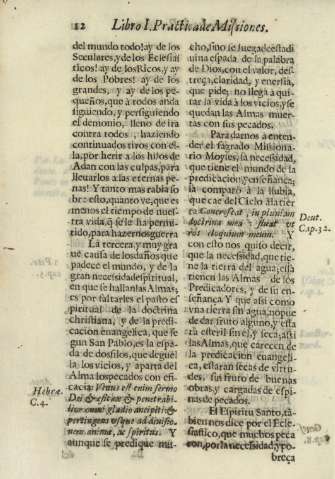 12 Libro I. Practica de Missiones.
del mundo todo! ay de los
Seculares, y de los Eclesiás
ticos! ay de los Ricos, y ay
de los Pobres! ay de los
grandes, y ay de los pe-
queños, que à todos anda
siguiendo, y persiguiendo
el demonio, lleno de ira
contra todos, haziendo
continuados tiros con el-
la, por herir a los hijos de
Adan con las culpas, para
llevarlos a las eternas pe-
nas! Y tanto mas rabia so
bre esto, quanto ve, que es
menos el tiempo de nues-
tra vida, q̃ se le ha permi-
tido, para hazernos guerra
La tercera, y muy gra
ve causa de los daños que
padece el mundo, y de la
gran necesidad espiritual,
en que se hallan las Almas
es por faltarles el pasto es
piritual de la doctrina
christiana, y de la predi-
cacion evangelica, que se
gun San Pablo, es la espa-
da de dos filos, que deguel
la los vicios, y aparta del
Alma los pecados con efi-
cacia: Vivus est enim sermo
Dei & efficax & penetrabi-
lior omni gladio ancipiti: &
pertingens usque ad divisio-
nem animæ, ac spiritus. Y
aunque se predique mu-
Hebræ.
C. 4.
cho, sino se juega de esta di
vina espada de la palabra
de Dios, con el valor, des-
treça, claridad, y enersia,
que pide, no llega à qui-
tar la vida à los vicios, y se
quedan las Almas muer-
tas con sus pecados.
Para darnos à enten-
der el sagrado Missiona-
rio Moyses, la necesidad,
que tiene el mundo de la
predicacion, y enseñança,
la comparò à la llubia,
que cae del Cielo à la tier
ra Concrescat, in pluviam
doctrina mea: fluat ut
ros eloquium meum. Y
con esto nos quiso decir,
que la necesidad, que tie-
ne la tierra del agua, essa
tienen las Almas de los
Predicadores, y de su en-
señança. Y que asi como
vna tierra sin agua, no pue
de dar fruto alguno, y està
ella esteril sin el, y seca; asi
las Almas, que carecen de
la predicacion euangeli-
ca, estaràn secas de virtu-
des, sin fruto de buenas
obras, y cargadas de espi-
nas de pecados.
El Espiritu Santo, tã-
bien nos dice por el Ecle-
siastico, que muchos peca
con, por la necesidad, y po-
breça
Deut.
Cap. 32.